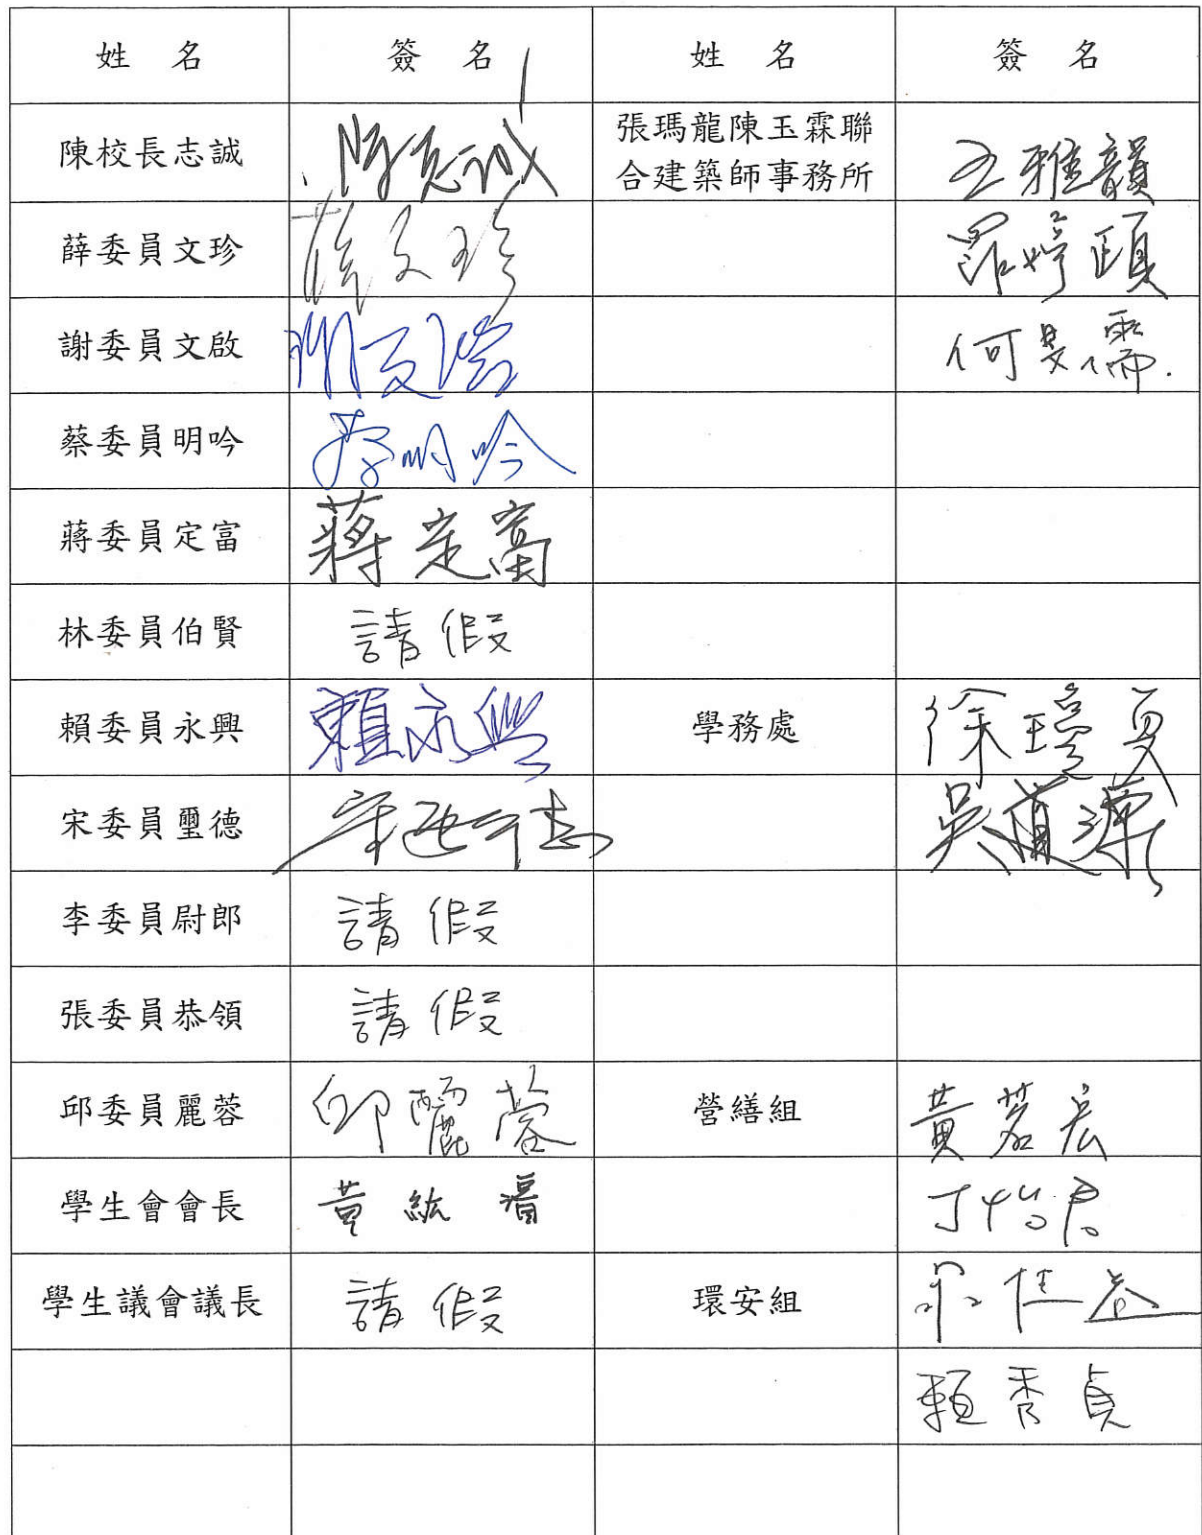 姓 名 簽 名 姓 名 簽 名
陳校長志誠 陳志誠 張瑪龍陳玉霖聯
合建築師事務所 王雅韻
薛委員文珍 薛文珍 羅婷頤
謝委員文啟 謝文啟 何旻霈
蔡委員明吟 蔡明吟
蔣委員定富 蔣定富
林委員伯賢 請假
賴委員永興 賴永興 學務處 徐瓊夏
宋委員璽德 宋璽德
李委員尉郎 請假
張委員恭領 請假
邱委員麗蓉 邱麗蓉 營繕組 黃茗宏
學生會會長 黃紘
學生議會議長 請假 環安組
賴秀貞